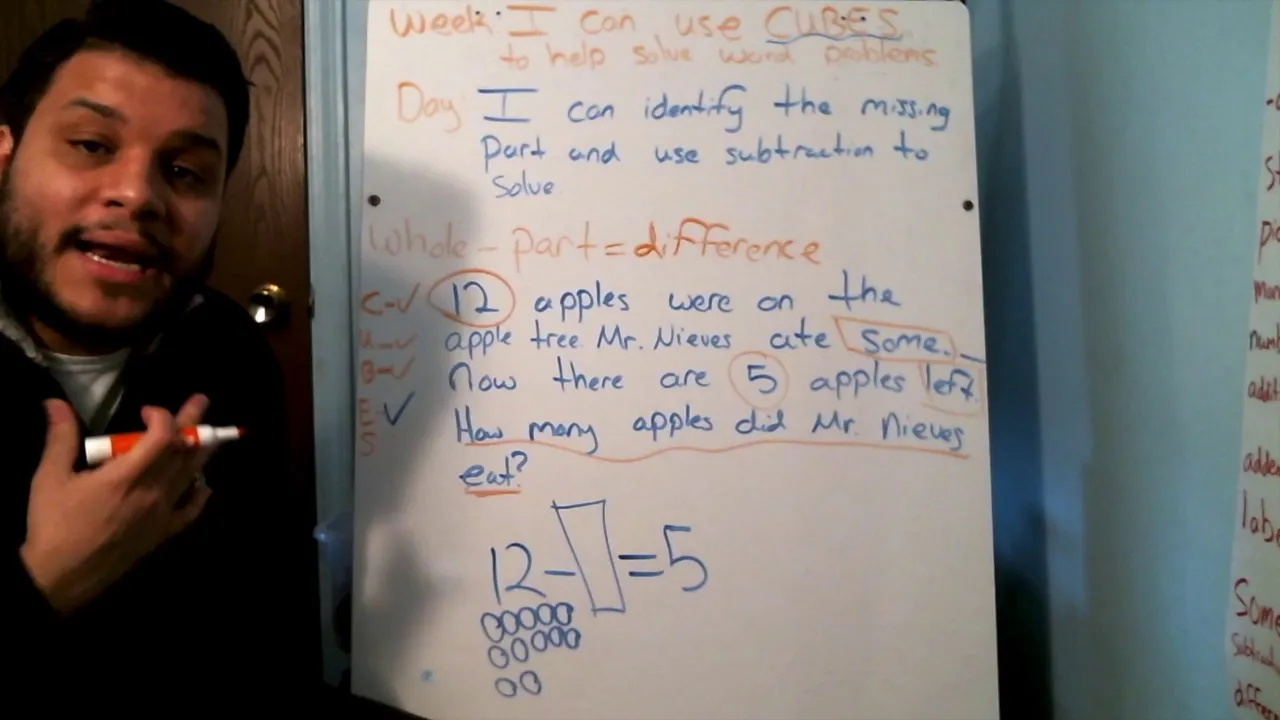 Week: I can use CUBES
to help solve word problems
Day I can identify the missing
part and use subtraction to
solve
Whole - part = difference
C-✓ 12 apples were on the
U-✓ apple tree. Mr. Nieves ate some.
B-✓ Now there are 5 apples left.
E ✓ How many apples did Mr. Nieves
S eat?
12 - = 5
Some